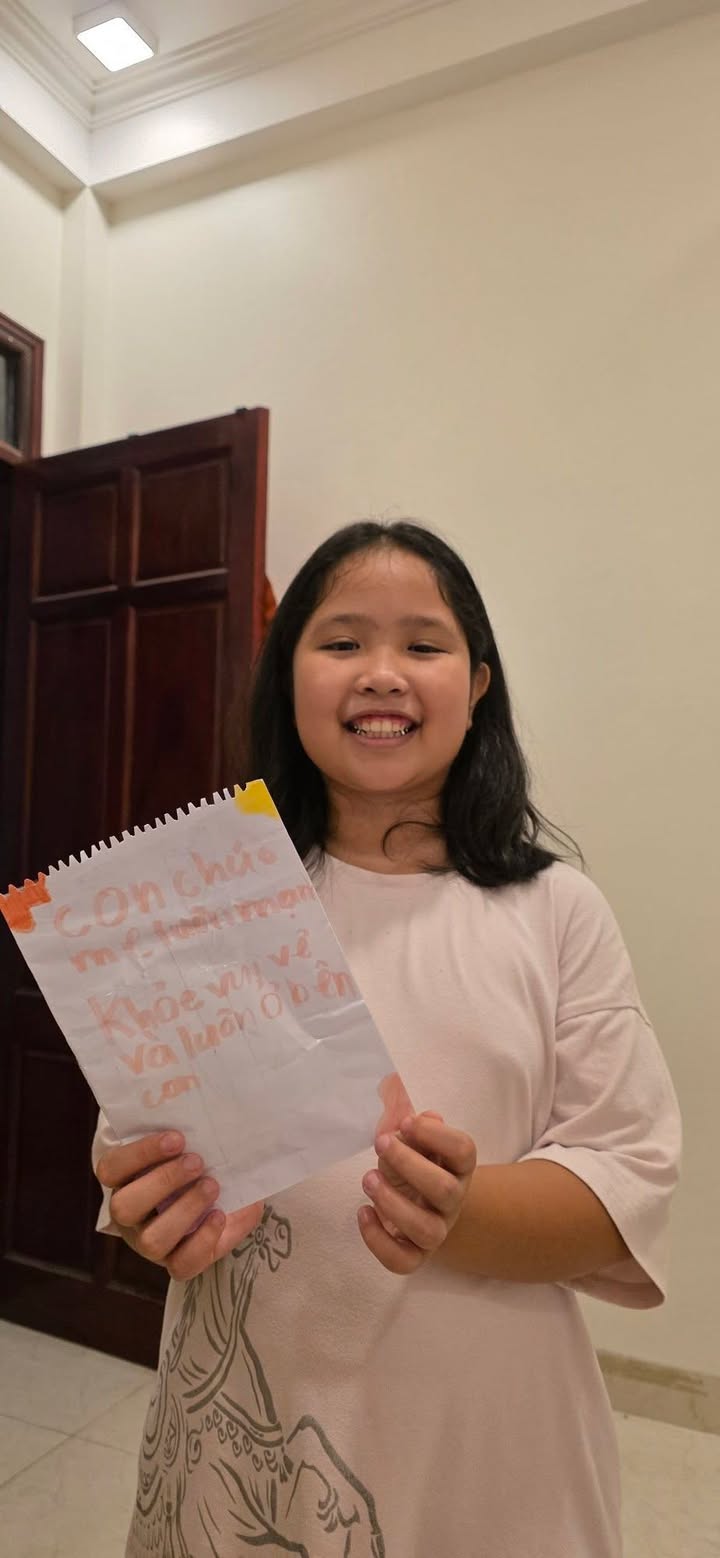 con chúc
mẹ luôn mạnh
khỏe vuy vẻ
và luôn ở bên
con